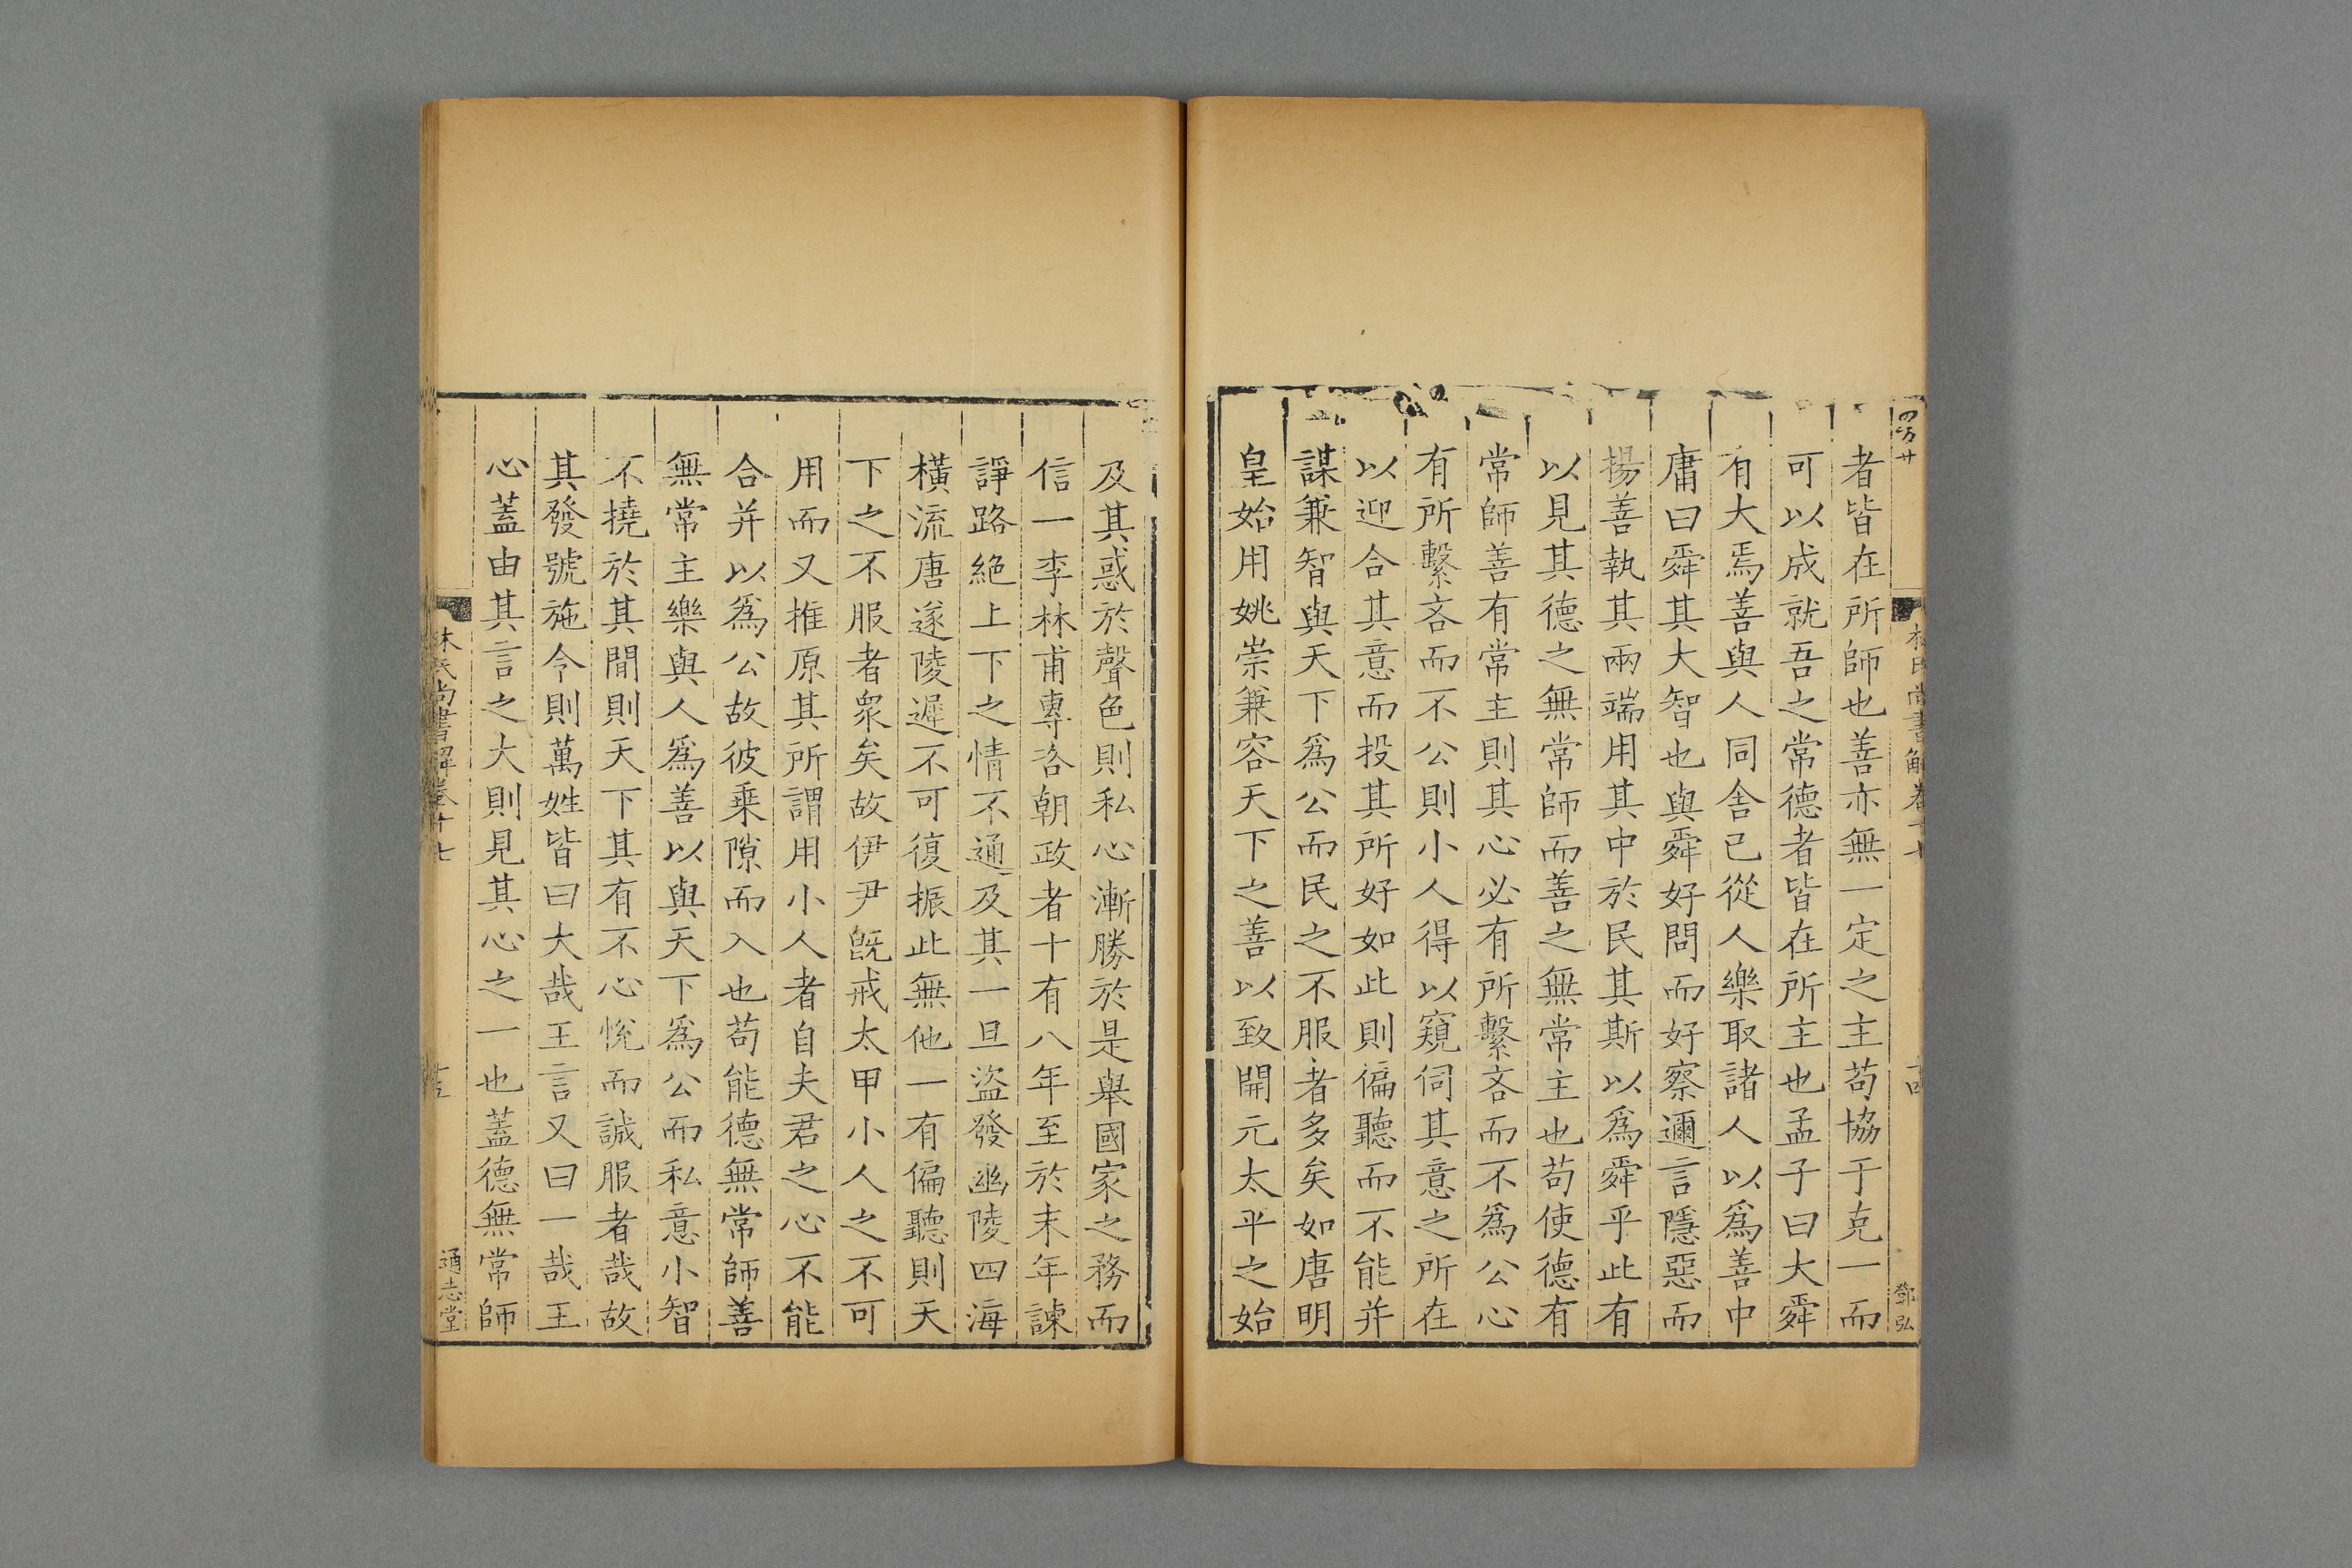 四百廿
林氏尚書解卷十七
十四
鄧弘
者皆在所師也善亦無一定之主苟協于克一而
可以成就吾之常德者皆在所主也孟子曰大舜
有大焉善與人同舍已從人樂取諸人以爲善中
庸曰舜其大智也與舜好問而好察邇言隱惡而
揚善執其兩端用其中於民其斯以爲舜乎此有
以見其德之無常師而善之無常主也苟使德有
常師善有常主則其心必有所繫吝而不爲公心
有所繫吝而不公則小人得以窺伺其意之所在
以迎合其意而投其所好如此則偏聽而不能并
謀兼智與天下爲公而民之不服者多矣如唐明
皇始用姚崇兼容天下之善以致開元太平之始
及其惑於聲色則私心漸勝於是舉國家之務而
信一李林甫專洛朝政者十有八年至於末年諫
諍路絕上下之情不通及其一旦盜發幽陵四海
橫流唐遂陵遲不可復振此無他一有偏聽則天
下之不服者衆矣故伊尹既戒太甲小人之不可
用而又推原其所謂用小人者自夫君之心不能
合并以爲公故彼乘隙而入也苟能德無常師善
無常主樂與人爲善以與天下爲公而私意小智
不撓於其閒則天下其有不心悅而誠服者哉故
其發號施令則萬姓皆曰大哉王言又曰一哉王
心蓋由其言之大則見其心之一也蓋德無常師
林氏尚書解卷十七
十五
通志堂